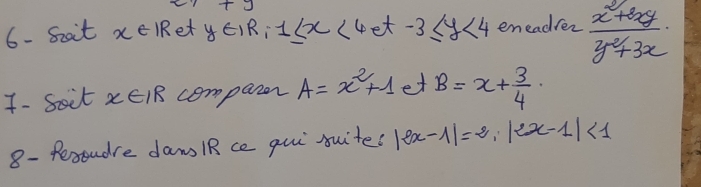 6- Soit x∈IR et y∈IR; 1≤x<4 et -3≤y<4 encadrer (x²+2xy)/(y²+3x).
7- Soit x∈IR comparer A= x²+1 et B= x+3/4.
8- Resoudre dans IR ce qui suite: |2x-1|=2, |2x-1|<1